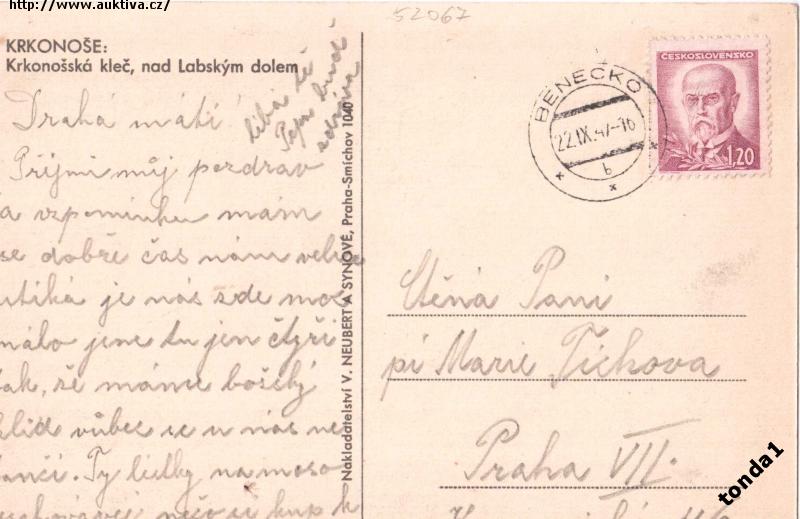 http://www.auktiva.cz/
52067
KRKONOŠE:
Krkonošská kleč, nad Labským dolem
Drahá máti!
Přijmi můj pozdrav
a vzpomínku mám
se dobře čas nám velice
utíká je nás zde moc
málo jsme tu jen čtyři
tak, že máme božský
klid vůbec se u nás ne
Ty lístky na maso
nech si kup k
líbá tě
Pepa buď
zdráva
Nakladatelství V. NEUBERT A SYNOVÉ, Praha-Smíchov 1040
BENECKO
22.IX.47-16
b
ČESKOSLOVENSKO
1,20
Ctěná Paní
pí Marie Tichova
Praha VII.
tonda1